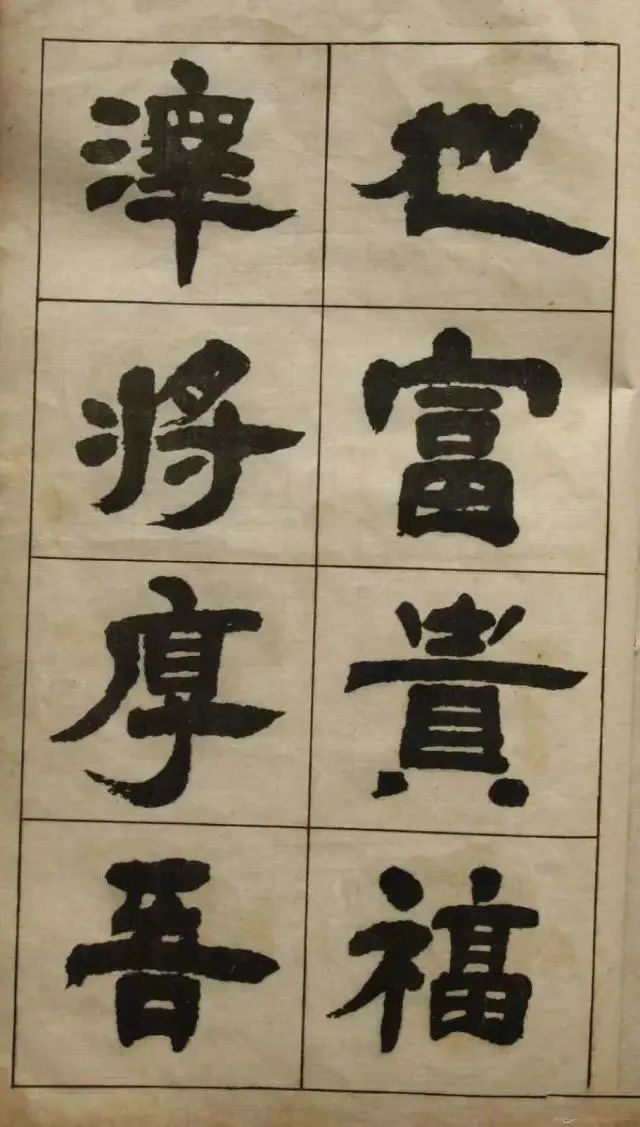 也富貴福
澤將厚吾